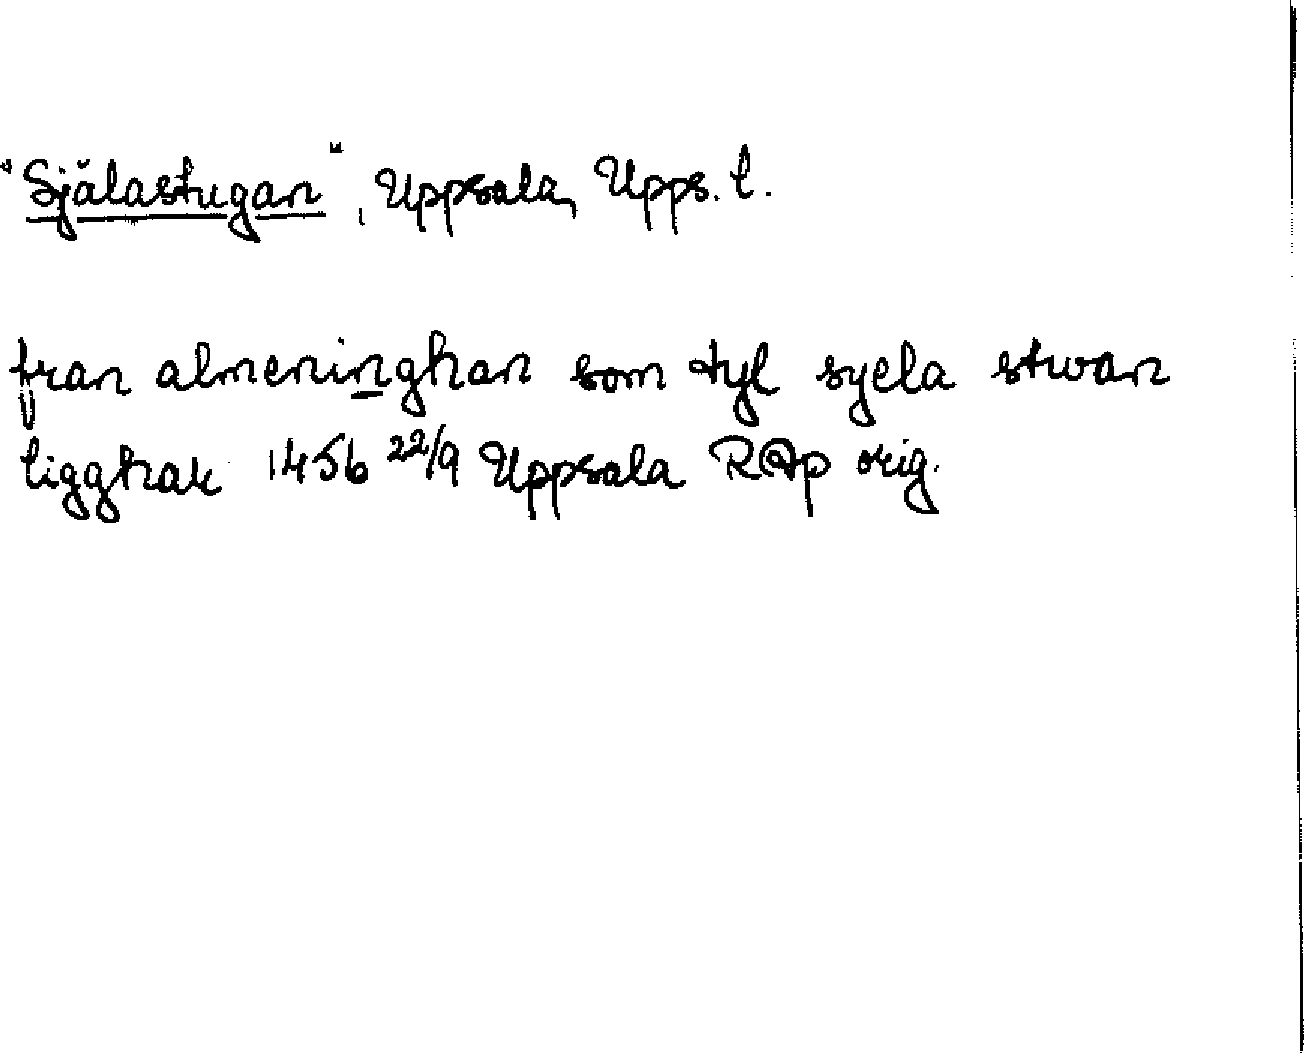 "Själastugan", Uppsala, Upps. l.
fran almeninghan som tyl syela stwan
ligghar 1456 22/9 Uppsala RAp orig.